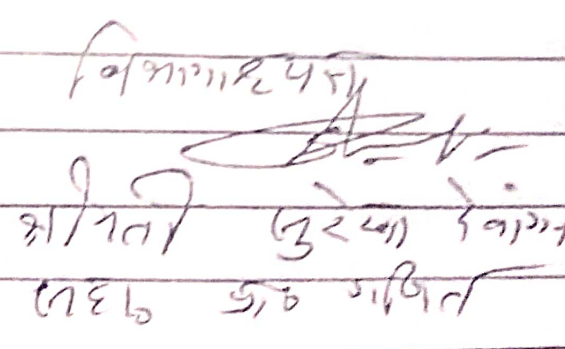 विभागाध्यक्ष
श्रीमती सुरेखा देवांगन
सहा० प्रा० गणित